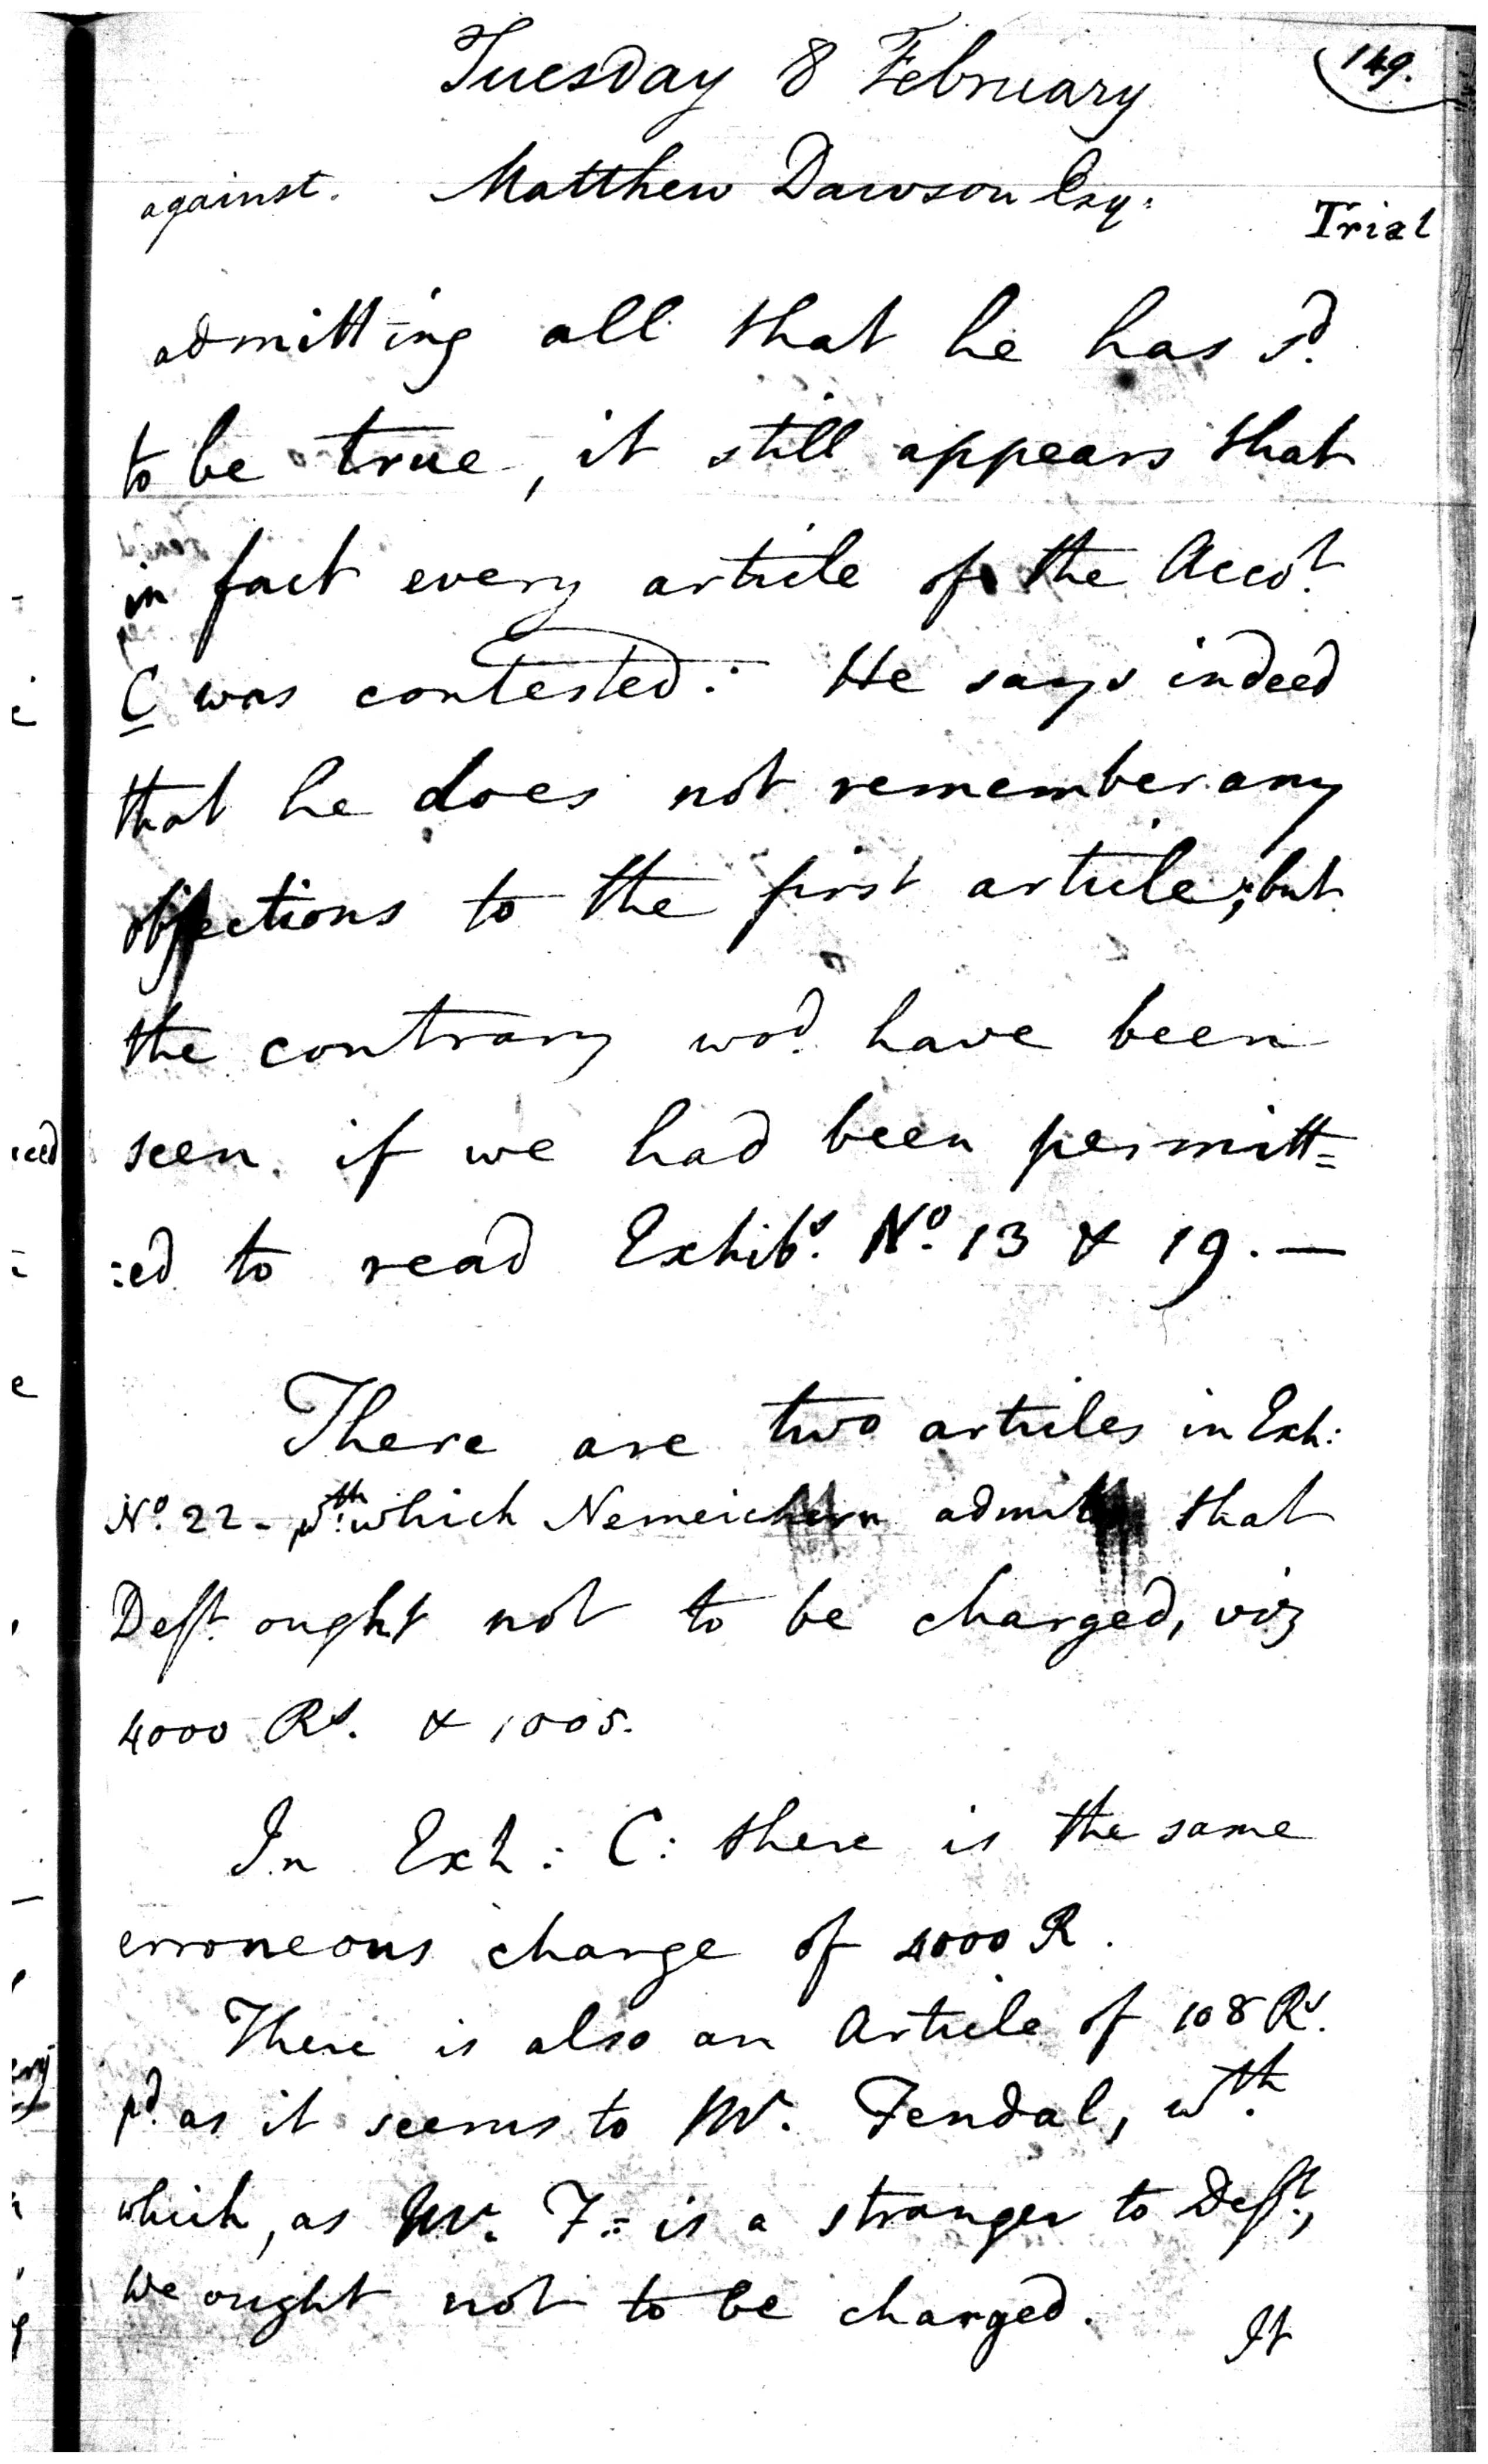 Tuesday 8 February
149.
against. Matthew Dawson Esq.
Trial
admitting all that he has sd.
to be true, it still appears that
in fact every article of the Accot.
C was contested: He says indeed
that he does not remember any
objections to the first article; but
the contrary wod. have been
seen if we had been permitt=
:ed to read Exhibs. No. 13 & 19. —
There are two articles in Exh:
No. 22 - wth. which admits that
Deft. ought not to be charged, viz
4000 Rs. & 1005.
In Exh: C: there is the same
erroneous charge of 4000 R.
There is also an Article of 108 Rs.
pd. as it seems to Mr. Fendal, wth.
which, as Mr. F: is a stranger to Deft.,
We ought not to be charged.
It